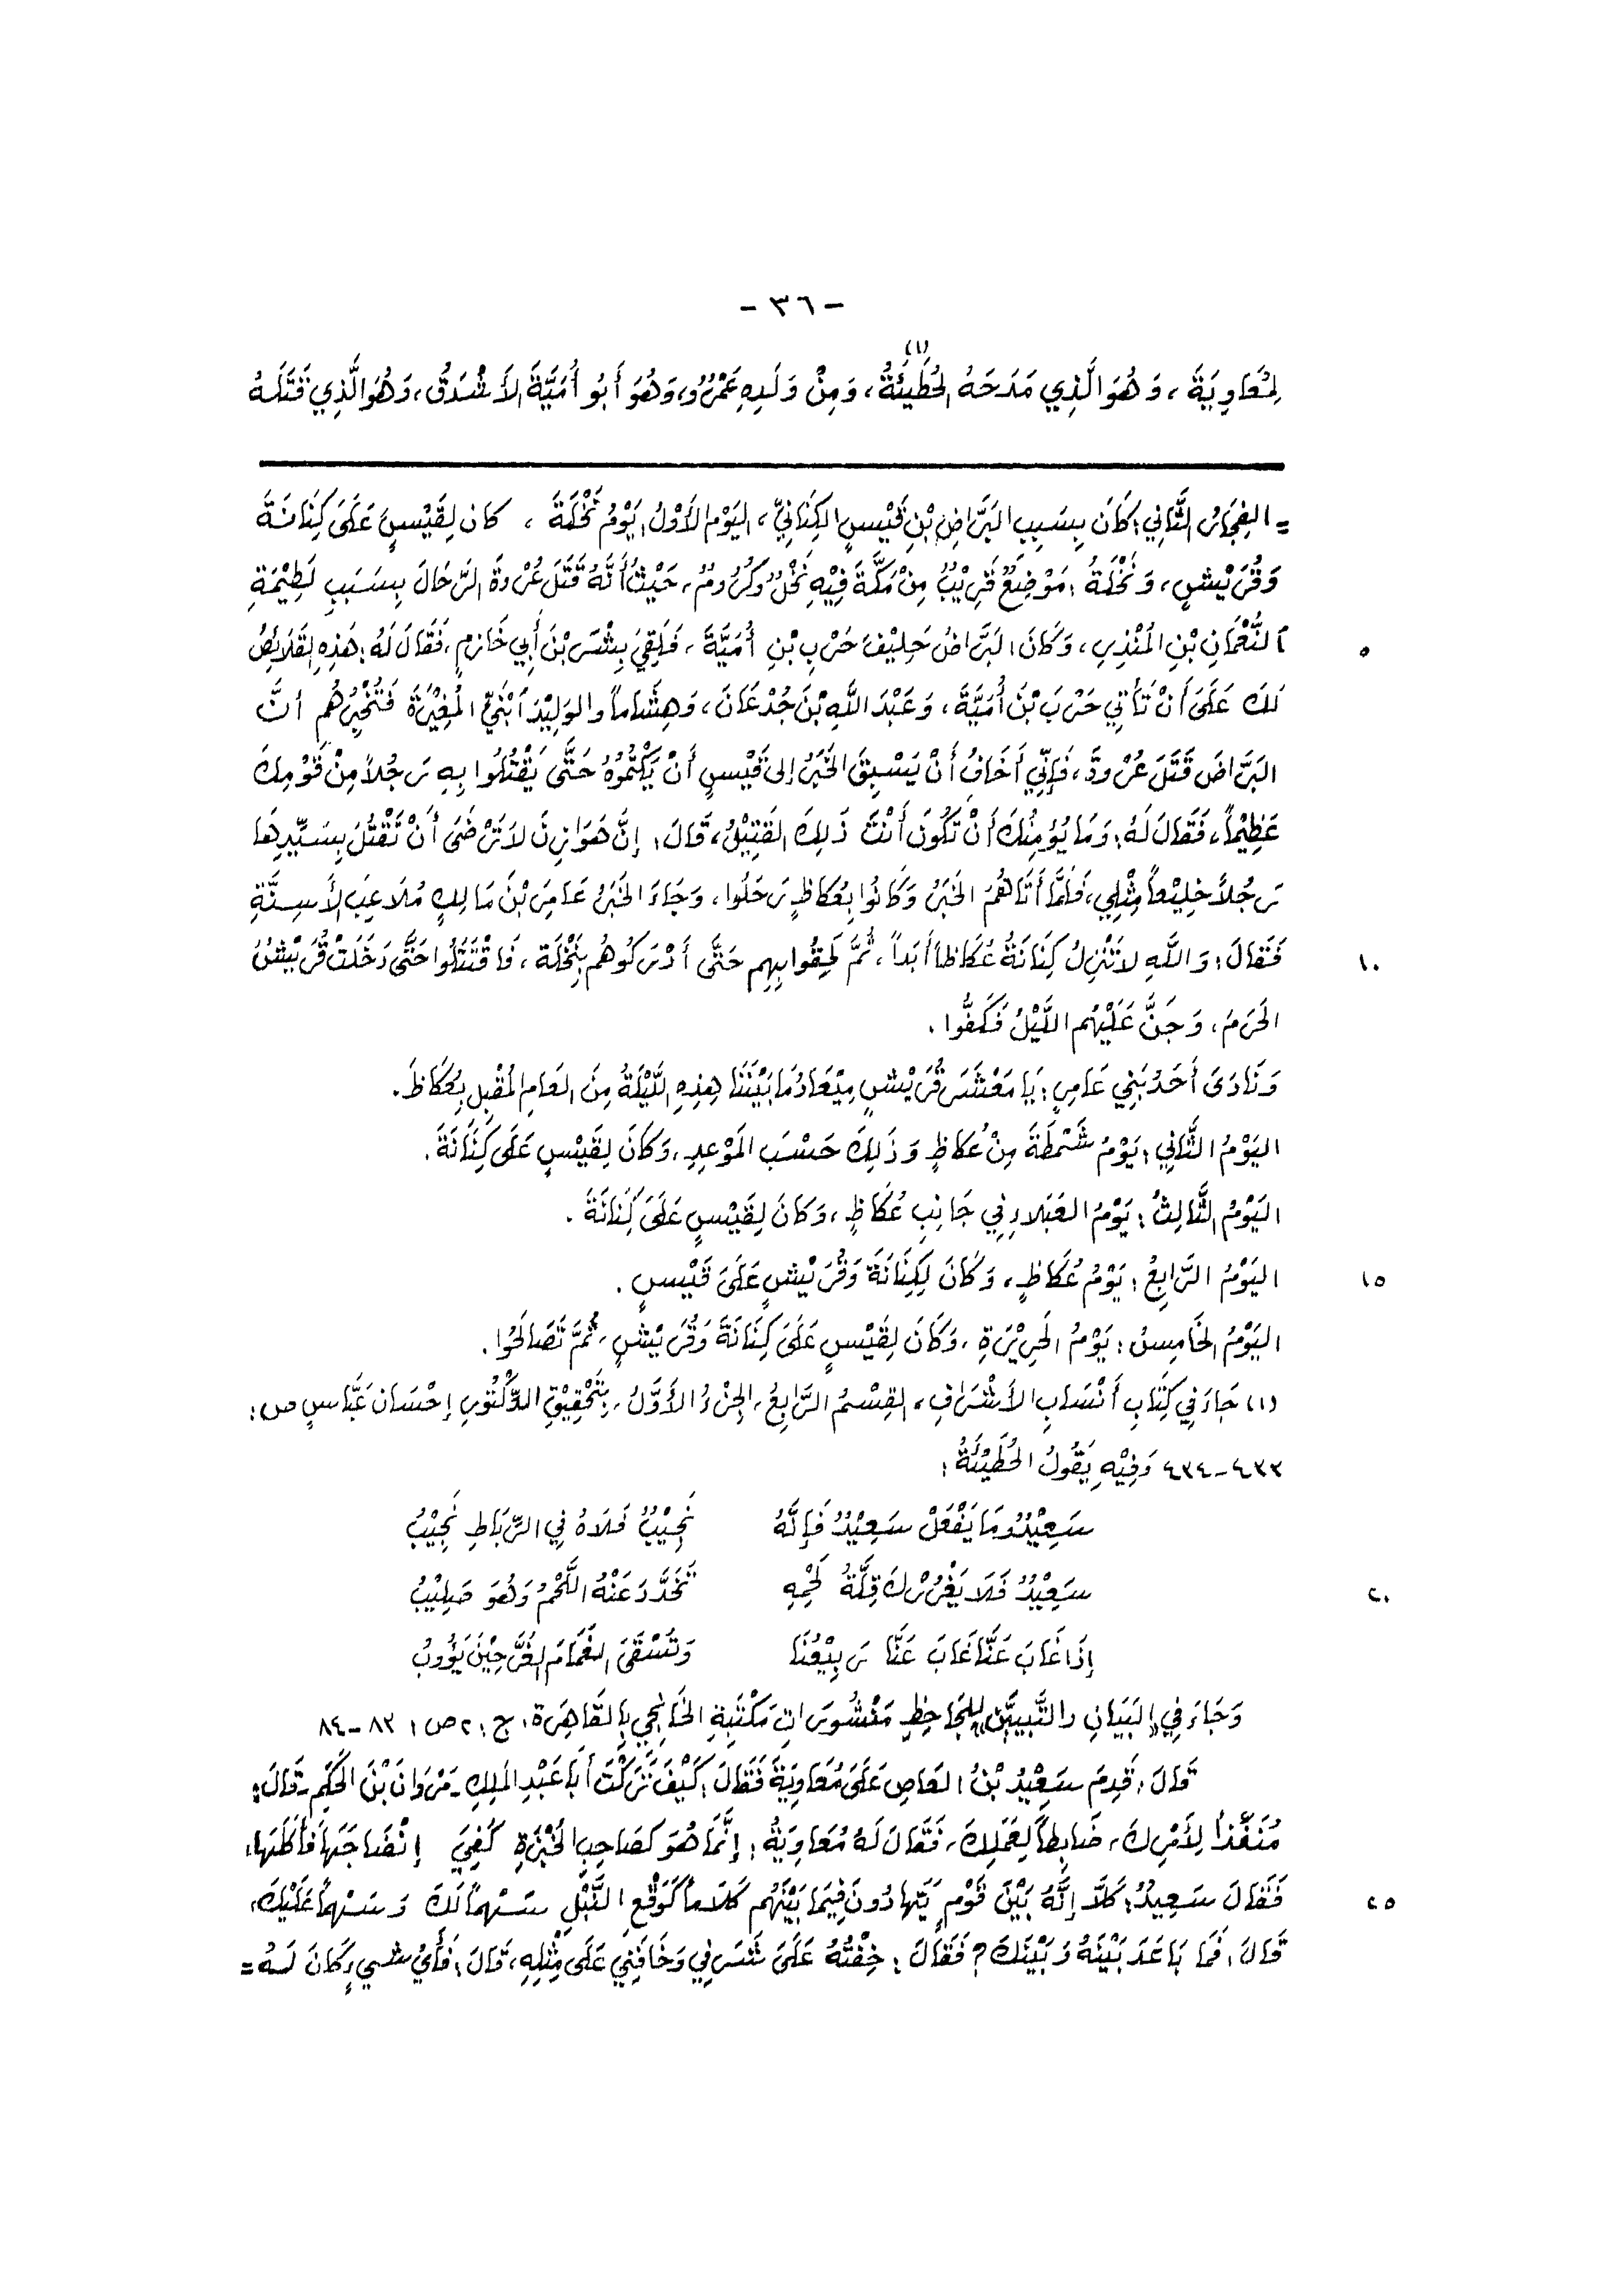 - ٣٦ -
لِمُعَاوِيَةَ ، وَهُوَ الَّذِي مَدَحَهُ الحُطَيْئَةُ(١)، وَمِنْ وَلَدِهِ عَمْرٌو، وَهُوَ أَبُو أُمَيَّةَ الأَشْدَقُ، وَهُوَ الَّذِي قَتَلَهُ
= الفِجَارُ الثَّانِي: كَانَ بِسَبَبِ البَرَّاضِ بْنِ قَيْسٍ الكِنَانِيِّ، اليَوْمُ الأَوَّلُ: يَوْمُ نَخْلَةَ ، كان لِقَيْسٍ عَلَى كِنَانَةَ
وَقُرَيْشٍ، وَنَخْلَةُ: مَوْضِعٌ قَرِيْبٌ مِنْ مَكَّةَ فِيْهِ نَخْلٌ وَكُرُومٌ، حَيْثُ أَنَّهُ قَتَلَ عُرْوَةَ الرَّحَّالَ بِسَبَبِ لَطِيْمَةِ
٥ النُّعْمَانِ بْنِ المُنْذِرِ، وَكَانَ البَرَّاضُ حَلِيْفَ حَرْبِ بْنِ أُمَيَّةَ، فَلَقِيَ بِشْرَ بْنَ أَبِي خَازِمٍ، فَقَالَ لَهُ: هَذِهِ القَلَائِصُ
لَكَ عَلَى أَنْ تَأْتِي حَرْبَ بْنَ أُمَيَّةَ، وَعَبْدَ اللَّهِ بْنَ جُدْعَانَ، وَهِشَاماً والوَلِيْدَ ابْنَيِّ المُغِيْرَةَ فَتُخْبِرُهُم أنَّ
البَرَّاضَ قَتَلَ عُرْوَةَ، فَإِنِّي أَخَافُ أَنْ يَسْبِقَ الخَبَرُ إلى قَيْسٍ أَنْ يَكْتُمُوهُ حَتَّى يَقْتُلُوا بِهِ رَجُلاً مِنْ قَوْمِكَ
عَظِيْماً، فَقَالَ لَهُ: وَمَا يُؤمِنُكَ أَنْ تَكُونَ أَنْتَ ذَلِكَ القَتِيْلُ، قَالَ: إنَّ هَوَازِنَ لاَ تَرْضَى أَنْ تَقْتُلَ بِسَيِّدِهَا
رَجُلاً خَلِيْعاً مِثْلِي، فَلَمَّا أَتَاهُمُ الخَبَرُ وَكَانُوا بِعُكَاظٍ رَحَلُوا، وَجَاءَ الخَبَرُ عَامِرَ بْنَ مَالِكٍ مُلَاعِبَ الأَسِنَّةِ
١٠ فَقَالَ: وَاللَّهِ لاَ تَنْزِلُ كِنَانَةُ عُكَاظَ أَبَداً، ثُمَّ لَحِقُوا بِهِم حَتَّى أَدْرَكُوهُم بِنَخْلَةَ، فَاقْتَتَلُوا حَتَّى دَخَلَتْ قُرَيْشٌ
الحَرَمَ، وَجَنَّ عَلَيْهُم اللَّيْلُ فَكَفُّوا .
وَنَادَى أَحَدُ بَنِي عَامِرٍ: يَا مَعْشَرَ قُرَيْشٍ مِيْعَادُ مَا بَيْنَنَا هَذِهِ اللَّيْلَةُ مِنَ العَامِ المُقْبِلِ بِعُكَاظَ.
اليَوْمُ الثَّانِي: يَوْمُ شَمْطَةَ مِنْ عُكَاظٍ وَذَلِكَ حَسْبَ المَوْعِدِ، وَكَانَ لِقَيْسٍ عَلَى كِنَانَةَ.
اليَوْمُ الثَّالِثُ: يَوْمُ العَبْلَاءِ فِي جَانِبِ عُكَاظٍ، وَكَانَ لِقَيْسٍ عَلَى كِنَانَةَ .
١٥ اليَوْمُ الرَّابِعُ: يَوْمُ عُكَاظٍ، وَكَانَ لِكِنَانَةَ وَقُرَيْشٍ عَلَى قَيْسٍ .
اليَوْمُ الخَامِسُ: يَوْمُ الحَرِيْرَةِ، وَكَانَ لِقَيْسٍ عَلَى كِنَانَةَ وَقُرَيْشٍ، ثُمَّ تَصَالَحُوا.
(١) جَاءَ فِي كِتَابِ أَنْسَابِ الأَشْرَافِ، القِسْمُ الرَّابِعُ، الجُزْءُ الأَوَّلُ، بِتَحْقِيْقِ الدُّكْتُورِ إحْسَان عَبَّاسٍ ص:
٤٣٣-٤٣٤ وَفِيْهِ يَقُولُ الحُطَيْئَةُ:
سَعِيْدٌ وَمَا يَفْعَلْ سَعِيْدٌ فَإِنَّهُ نَجِيْبٌ فَلَاهُ فِي الرِّبَاطِ نَجِيْبُ
٢٠ سَعِيْدٌ فَلَا يَغْرُرْكَ قِلَّةُ لَحْمِهِ تَخَدَّدَ عَنْهُ اللَّحْمُ وَهُوَ صَلِيْبُ
إِذَا غَابَ عَنَّا غَابَ عَنَّا رَبِيْعُنَا وَتَسْقَى الغَمَامَ الغُرَّ حِيْنَ يَؤُوبُ
وَجَاءَ فِي «البَيَانِ والتَّبيينَ» لِلْجَاحِظِ مَنْشُورَاتِ مَكْتَبَةِ الخَانْجِي بِالقَاهِرَةِ، ج: ٢ ص: ٨٣ - ٨٤
قَالَ: قَدِمَ سَعِيْدُ بْنُ العَاصِ عَلَى مُعَاوِيَةَ فَقَالَ: كَيْفَ تَرَكْتَ أَبَا عَبْدِ المَلِكِ - مَرْوَانَ بْنَ الحَكَمِ - قَالَ:
مُنَفِّذاً لِأَمْرِكَ، ضَابِطاً لِعَمَلِكَ، فَقَالَ لَهُ مُعَاوِيَةُ: إِنَّمَا هُوَ كَصَاحِبِ الخُبْزَةِ كُفِيَ إِنْضَاجَهَا فَأَكَلَهَا،
٢٥ فَقَالَ سَعِيدٌ: كَلَّا إِنَّهُ بَيْنَ قَوْمٍ يَتَهَادُونَ فِيمَا بَيْنَهُم كَلَاماً كَوَقْعِ النَّبْلِ سَهْماً لَكَ وَسَهْماً عَلَيْكَ،
قَالَ: فَمَا بَاعَدَ بَيْنَهُ وَبَيْنَكَ؟ فَقَالَ: خِفْتُهُ عَلَى شَرَفِي وَخَافَنِي عَلَى مِثْلِهِ، قَالَ: فَأَيُّ شيءٍ كَانَ لَهُ =